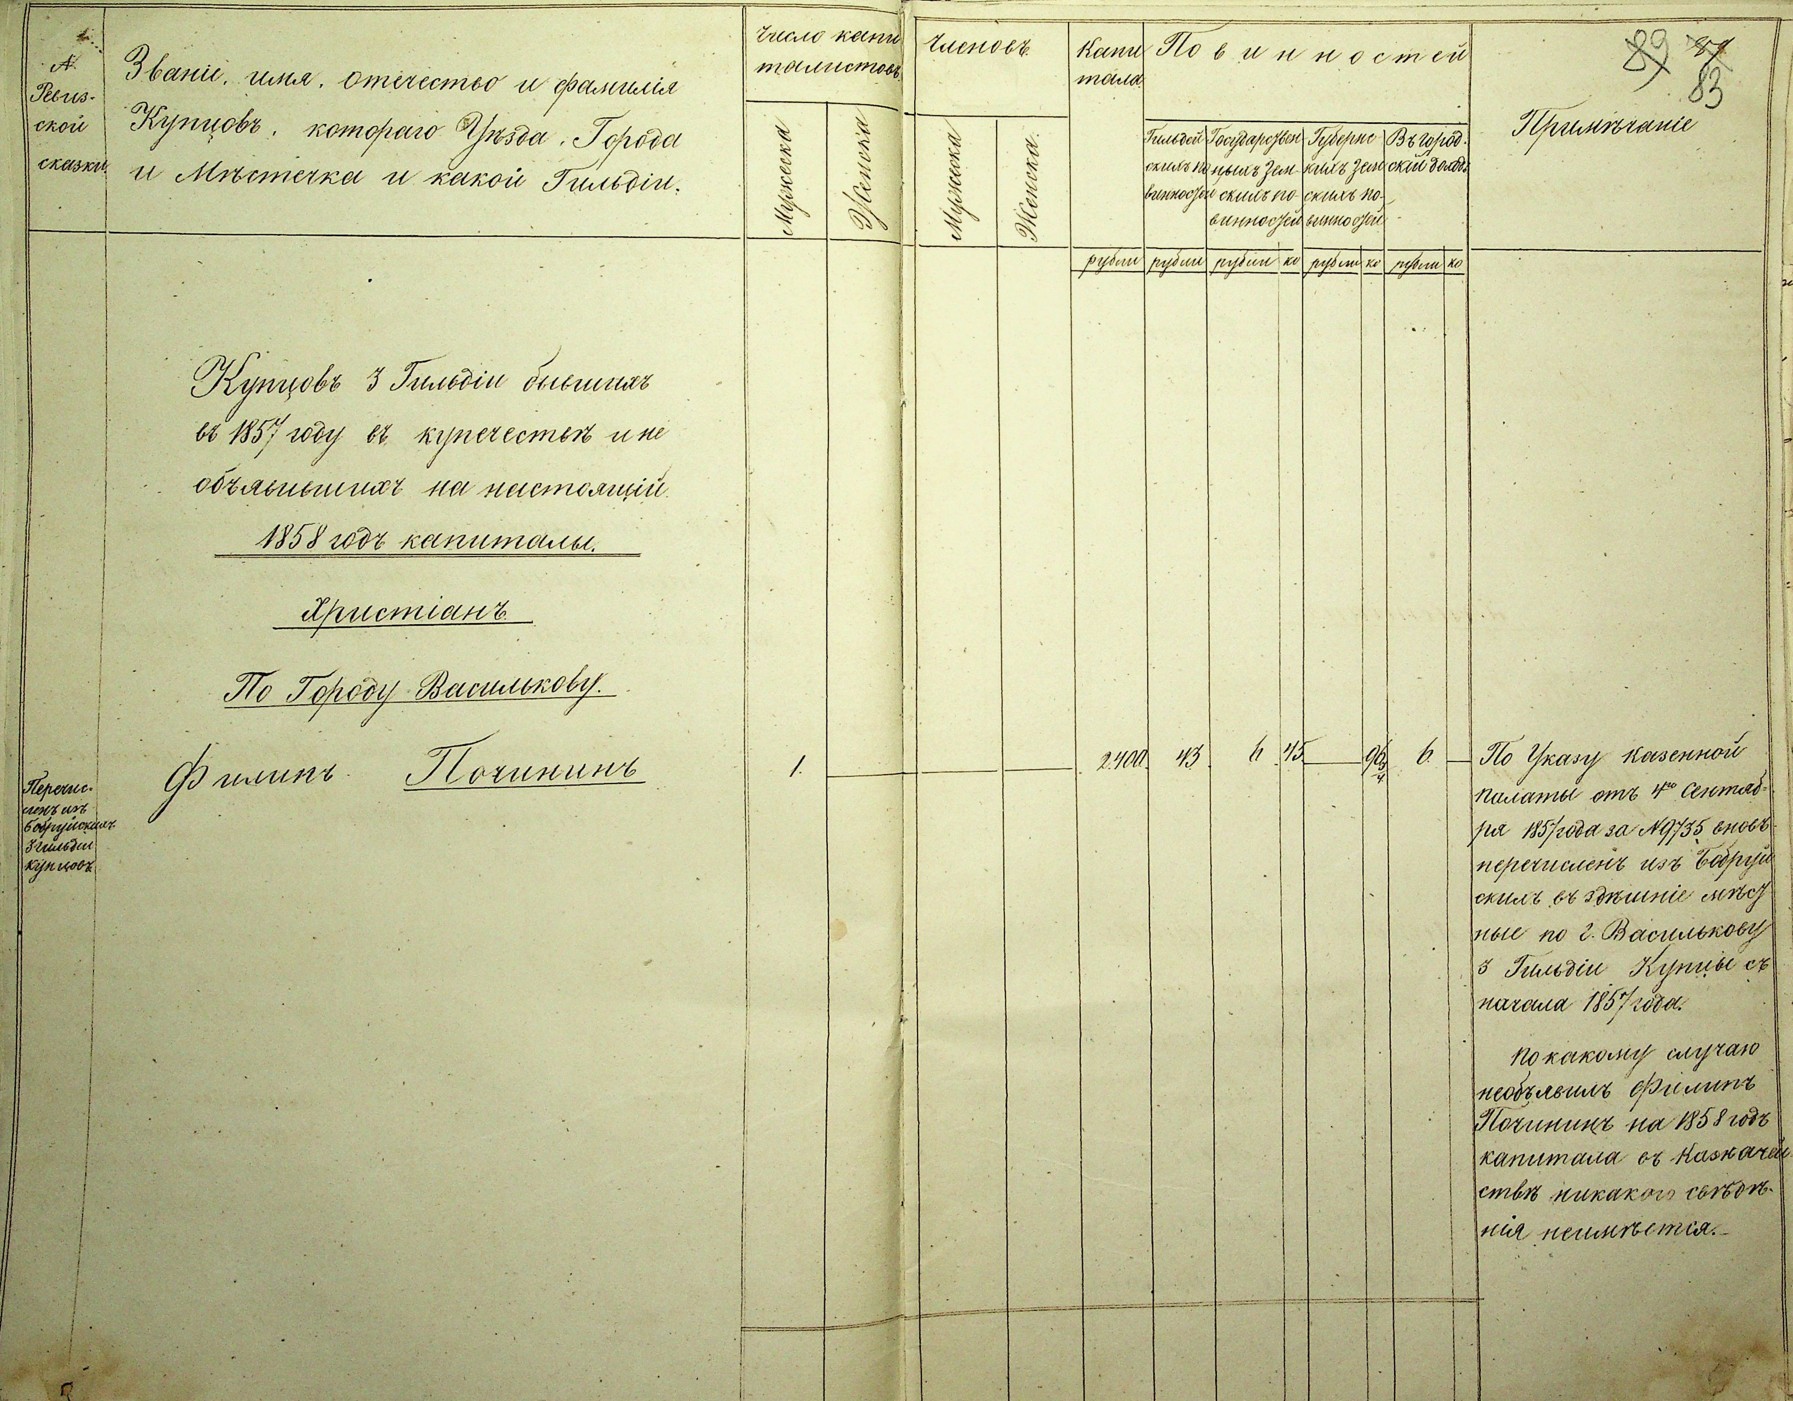 №
Ревиз-
ской
сказки.
Званіе, имя, отечество и фамилія
Купцовъ, котораго Уѣзда, Города
и Мѣстечка и какой Гильдіи.
Число капи
талистовъ
Мужеска
Женска
Членовъ
Мужеска
Женска.
Капи
тала
Повинностей
Гильдей
скихъ по
винностей
Государствен
ныхъ Зем-
скихъ по-
винностей
Губернс
кихъ Зем
скихъ по-
винностей
Въ город-
ской доходъ
Примѣчаніе
89 87
83
рубли рубли рубли ко рубли ко рубли ко
Купцовъ 3 Гильдіи бывшихъ
въ 1857 году въ купечествѣ и не
объявившихъ на настоящій
1858 годъ капиталы.
Христіанъ
По Городу Василькову.
Перечис-
ленъ изъ
Бобруйскихъ
3 гильдіи
купцовъ
Филипъ Почининъ 1. 2400 43 6 45 96 3/4 6.
По Указу Казенной
Палаты отъ 4го Сентяб-
ря 1857 года за №9735 вновь
перечисленъ изъ Бобруй
скихъ въ здѣшніе мѣст
ные по г. Василькову
3 Гильдіи Купцы съ
начала 1857 года.
По какому случаю
необъявилъ Филипъ
Почининъ на 1858 годъ
капитала въ Казначей
ствѣ никакого свѣдѣ-
нія неимѣется.